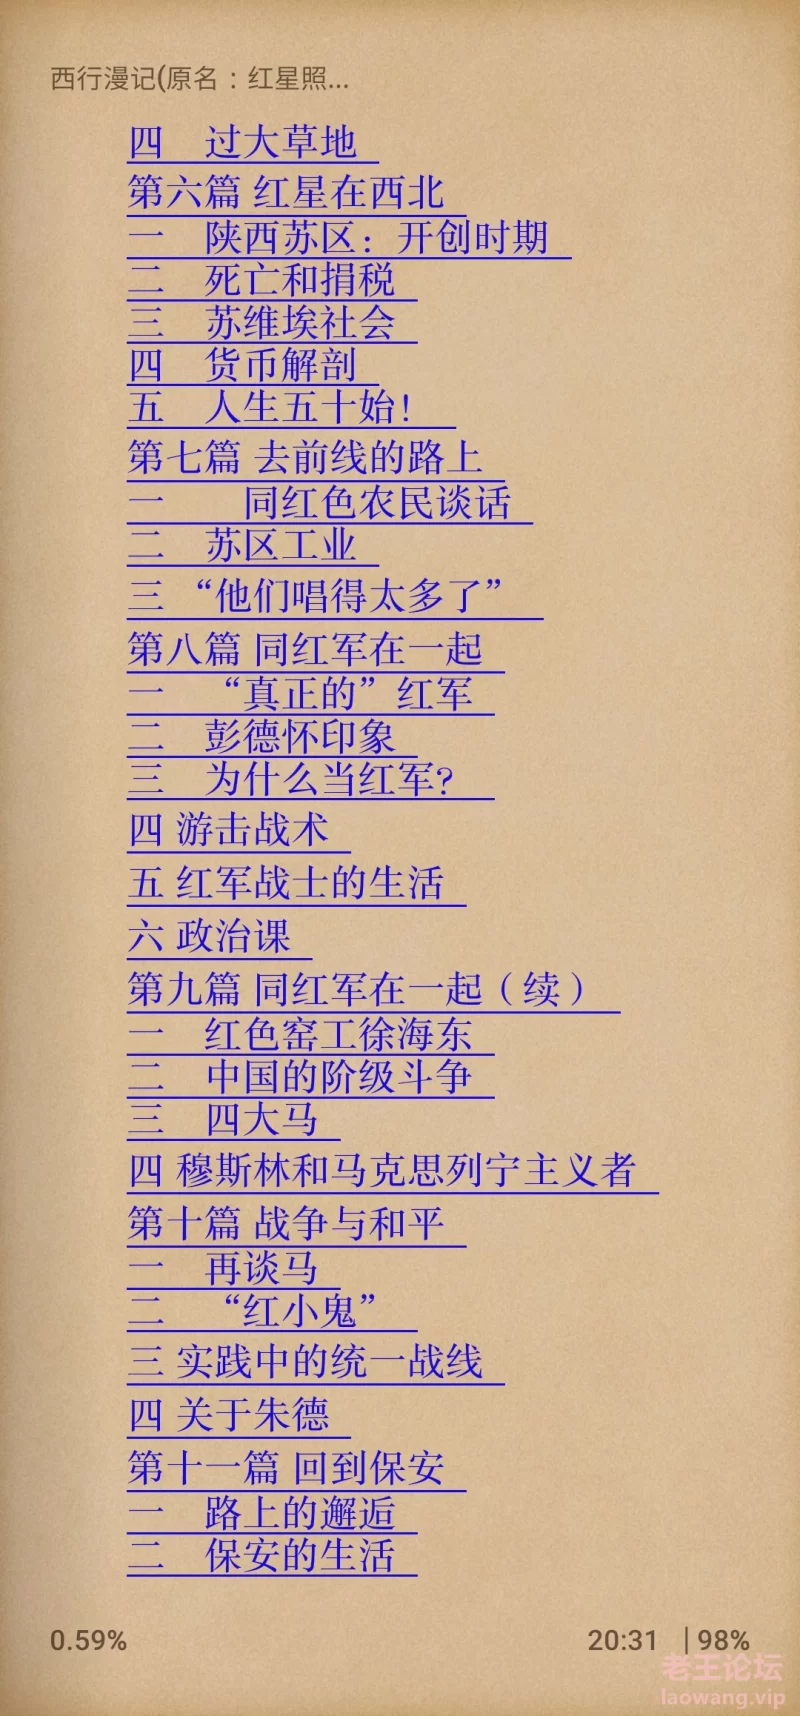 西行漫记(原名：红星照...
四　过大草地
第六篇 红星在西北
一　陕西苏区：开创时期
二　死亡和捐税
三　苏维埃社会
四　货币解剖
五　人生五十始！
第七篇 去前线的路上
一　　同红色农民谈话
二　苏区工业
三 “他们唱得太多了”
第八篇 同红军在一起
一　“真正的”红军
二　彭德怀印象
三　为什么当红军？
四 游击战术
五 红军战士的生活
六 政治课
第九篇 同红军在一起（续）
一　红色窑工徐海东
二　中国的阶级斗争
三　四大马
四 穆斯林和马克思列宁主义者
第十篇 战争与和平
一　再谈马
二　“红小鬼”
三 实践中的统一战线
四 关于朱德
第十一篇 回到保安
一　路上的邂逅
二　保安的生活
0.59% 20:31 |98%
老王论坛
laowang.vip